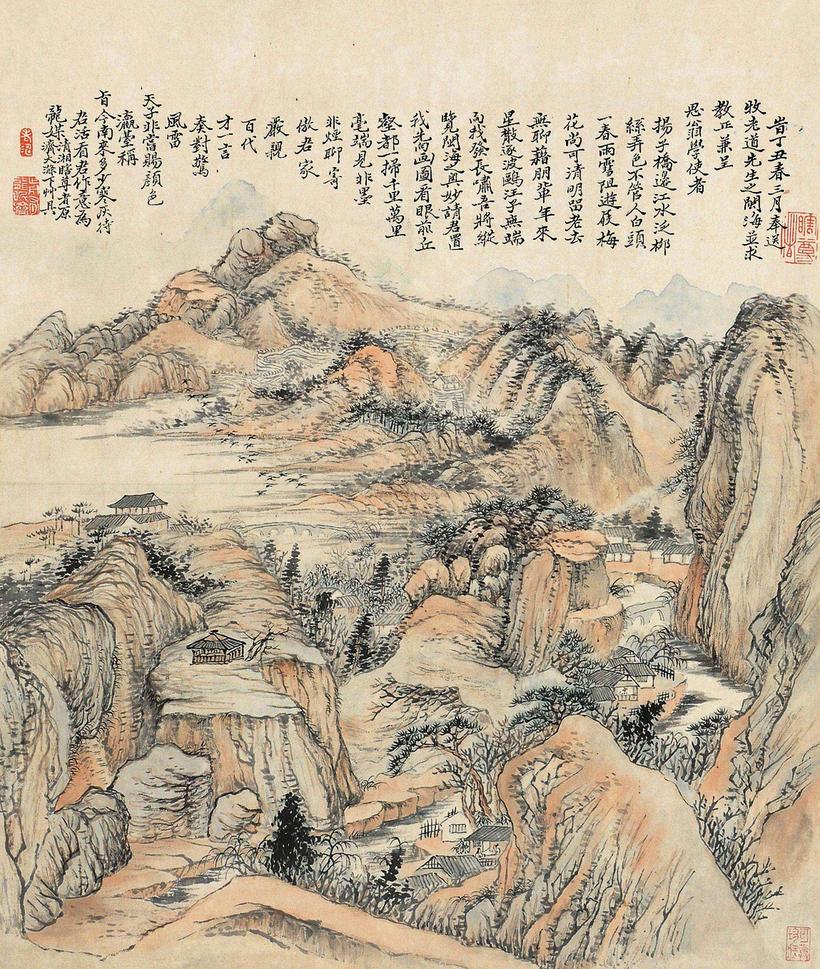 旹丁丑春三月奉送
牧老道先生之閩海並求
教正兼呈
思翁學使者
揚子橋邊江水泛柳
絲弄色不管人白頭
一春雨雪阻遊屐梅
花尚可清明留老去
無聊藉朋輩年來
星散逐波鷗汪子無端
向我發長嘯吾將縱
覽閩海之奧妙請君置
我画圖看眼前丘
壑都一掃千里萬里
毫端見非墨
非煙聊寄
倣君家
嚴親
百代
才一言
奏對驚
風雷
天子非當賜顏色
瀛臺稱
旨今南來多少寒灰待
君活看君作意為
龍媒 清湘瞎尊者原
濟大滌草具
瞎尊者